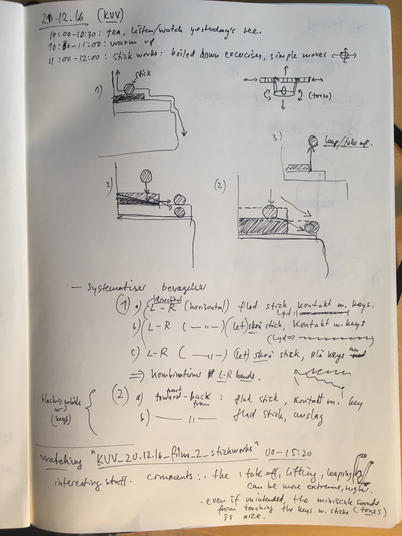 20.12.16 (KUV)
10:00-10:30: tea, listen/watch yesterday's rec.
10:30-11:00: warm up
11:00-12:00: stickworks: boiled down excercises, simple moves
1)
stick
(torso)
3)
leap/take off.
2)
(2)
- Systematiser bevægelser
(1) a) L-R (horizontal) flad stick, kontakt m. keys.
b) L-R ( — " — ) (let) skrå stick, kontakt m. keys
c) L-R ( — " — ) (let) skrå stick, keys
⇒ kombinations L-R hands.
black → white
(keys)
(2) a) toward-back : flad stick, kontakt m. key
front
b) — " — flad stick, anslag
watching "KUV_20.12.16_film_2_stickworks" 00-15:20
interesting stuff. comments: the take off, lifting, leaping
can be more extreme, higher.
- even if unintended, the miniscule sounds
from touching the keys w. sticks (tones)
is nice.